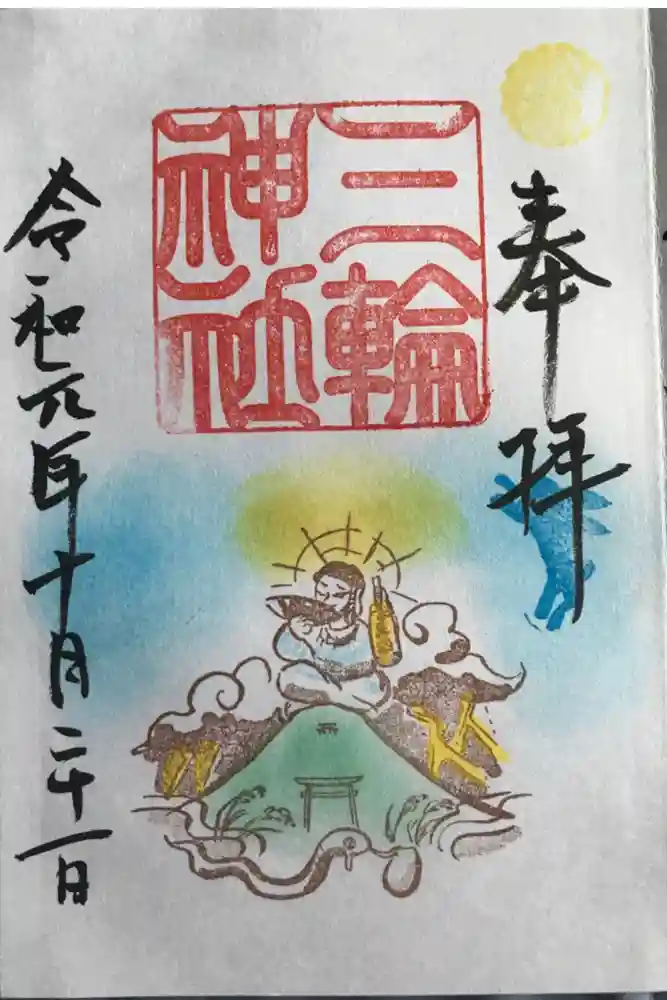 奉拝
三輪
神社
令和元年十月二十一日